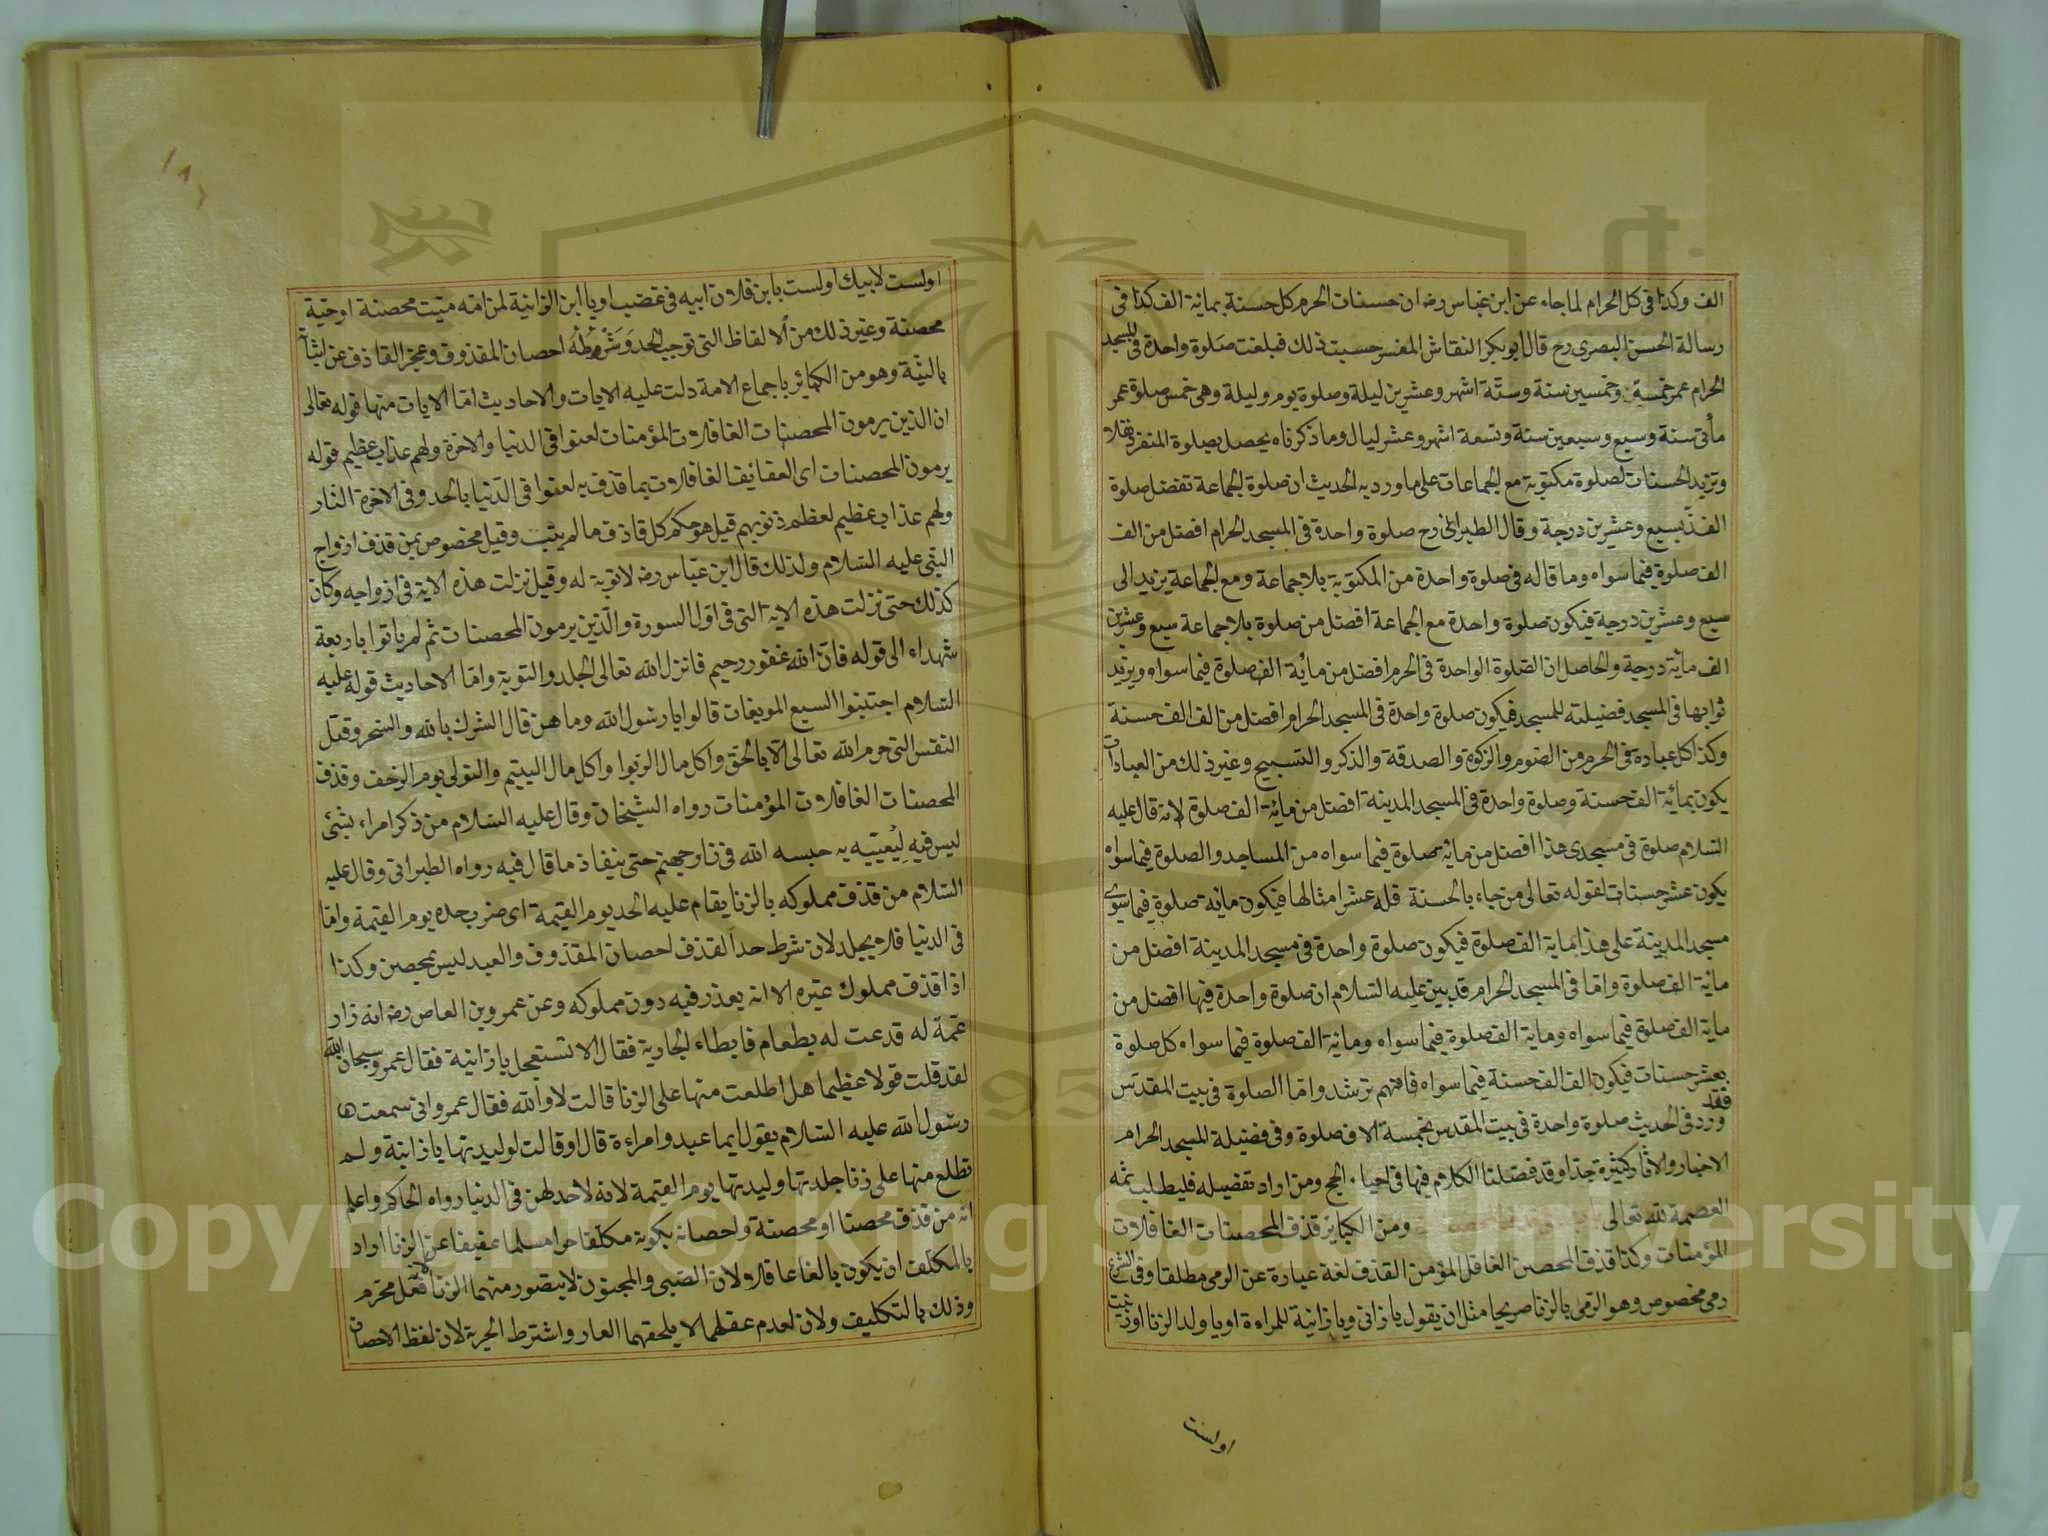 الف وكذا فى كل الحرام لما جاء عن ابن عباس رضه ان حسنات الحرم كل حسنة بمائة الف كذا فى
رسالة الحسن البصرى رح قال ابو بكر النقاش المفسر حسبت ذلك فبلغت صلوة واحدة فى المسجد
الحرام عمر خمسة وخمسين سنة وستة اشهر وعشرين ليلة وصلوة يوم وليلة وهى خمس صلوة عمر
مأتى سنة وسبع وسبعين سنة وتسعة اشهر وعشر ليال وما ذكرناه يحصل بصلوة المنفرد نفلا
وتزيد الحسنات لصلوة مكتوبة مع الجماعات على ما ورد به الحديث ان صلوة الجماعة تفضل صلوة
الفذ بسبع وعشرين درجة وقال الطبرانى رح صلوة واحدة فى المسجد الحرام افضل من الف
الف صلوة فيما سواه وما قاله فى صلوة واحدة من المكتوبة بلا جماعة ومع الجماعة يزيد الى
سبع وعشرين درجة فيكون صلوة واحدة مع الجماعة افضل من صلوة بلا جماعة سبع وعشرين
الف مائة درجة والحاصل ان الصلوة الواحدة فى الحرم افضل من مائة الف صلوة فيما سواه ويزيد
ثوابها فى المسجد فضيلته للمسجد فيكون صلوة واحدة فى المسجد الحرام افضل من الف الف حسنة
وكذا كل عبادة فى الحرم من الصوم والزكوة والصدقة والذكر والتسبيح وغير ذلك من العبادات
يكون بمائة الف حسنة وصلوة واحدة فى المسجد المدينة افضل من مائة الف صلوة لانه قال عليه
السلام صلوة فى مسجدى هذا افضل من مائة صلوة فيما سواه من المساجد والصلوة فيما سواه
يكون عشر حسنات لقوله تعالى من جاء بالحسنة فله عشر امثالها فيكون مائة صلوة فيما سوى
مسجد المدينة على هذا بماية الف صلوة فيكون صلوة واحدة فى مسجد المدينة افضل من
مائة الف صلوة واما فى المسجد الحرام قد بين عليه السلام ان صلوة واحدة فيها افضل من
ماية الف صلوة فيما سواه وماية الف صلوة فيما سواه ومائة الف صلوة فيما سواه كل صلوة
بعشر حسنات فيكون الف الف حسنة فيما سواه فافهم ترشد واما الصلوة فى بيت المقدس
فقد ورد فى الحديث صلوة واحدة فى بيت المقدس بخمسة الاف صلوة وفى فضيلة المسجد الحرام
الاخبار والاثار كثيرة جدا وقد فصلنا الكلام فيها فى احياء الحج ومن اراد تفضيله فليطلب ثمه
العصمة لله تعالى ومن الكبائر قذف المحصنات الغافلات
المؤمنات وكذا قذف المحصن الغافل المؤمن القذف لغة عبارة عن الرمى مطلقا وفى الشرع
رمى مخصوص وهو الرمى بالزنا صريحا مثل ان يقول يا زانى ويا زانية للمراءة او يا ولد الزنا او زنيت
اولست
اولست لابيك اولست بابن فلان ابيه فى غضب او يا ابن الزانية لمن امه ميت محصنة او حية
محصنة وغير ذلك من الالفاظ التى توجب الحد وشرطه احصان المقذوف وعجز القاذف عن اثباته
بالبينة وهو من الكبائر باجماع الامة دلت عليه الايات والاحاديث اما الايات منها قوله تعالى
ان الذين يرمون المحصنات الغافلات المؤمنات لعنوا فى الدنيا والاخرة ولهم عذاب عظيم قوله
يرمون المحصنات اى العفائف الغافلات بما قذف به لعنوا فى الدنيا بالحد وفى الاخرة النار
ولهم عذاب عظيم لعظم ذنوبهم قيل هو حكم كل قاذف ما لم يثبت وقيل مخصوص بمن قذف ازواج
النبى عليه السلام ولذلك قال ابن عباس رضه لا توبة له وقيل نزلت هذه الاية فى ازواجه وكان
كذلك حتى نزلت هذه الاية التى فى اول السورة والذين يرمون المحصنات ثم لم ياتوا باربعة
شهداء الى قوله فان الله غفور رحيم فانزل الله تعالى الجلد والتوبة واما الاحاديث قوله عليه
السلام اجتنبوا السبع الموبقات قالوا يا رسول الله وما هن قال الشرك بالله والسحر وقتل
النفس التى حرم الله تعالى الا بالحق واكل مال الربوا واكل مال اليتيم والتولى يوم الزحف وقذف
المحصنات الغافلات المؤمنات رواه الشيخان وقال عليه السلام من ذكر امراء بشئ
ليس فيه ليعيبه به حبسه الله فى نار جهنم حتى ينفاذ ما قال فيه رواه الطبرانى وقال عليه
السلام من قذف مملوكه بالزنا يقام عليه الحد يوم القيمة اى ضرب حده يوم القيمة واما
فى الدنيا فلا يجلد لان شرط حد القذف احصان المقذوف والعبد ليس بمحصن وكذا
اذا قذف مملوك غيره الا انه يعذر فيه دون مملوكه وعن عمرو بن العاص رضه انه زار
عمة له قد دعت له بطعام فابطاء الجارية فقال الا تستعجل يا زانية فقال عمرو سبحان الله
لقد قلت قولا عظيما هل اطلعت منها على الزنا قالت لا والله فقال عمرو انى سمعت
رسول الله عليه السلام يقول ايما عبد وامراءة قال او قالت لوليدتها يا زانية ولم
تطلع منها على زنا جلدتها وليدتها يوم القيمة لانه لا حد لهن فى الدنيا رواه الحاكم واعلم
انه من قذف محصنا او محصنة واحصانه بكونه مكلفا حرا مسلما عفيفا عن الزنا اراد
بالمكلف ان يكون بالغا عاقلا لان الصبى والمجنون لا يتصور منهما الزنا لانه فعل محرم
وذلك بالتكليف ولان لعدم عقلهما لا يلحقهما العار واشترط الحرية لان لفظ الاحصان
Copyright © King Saud University